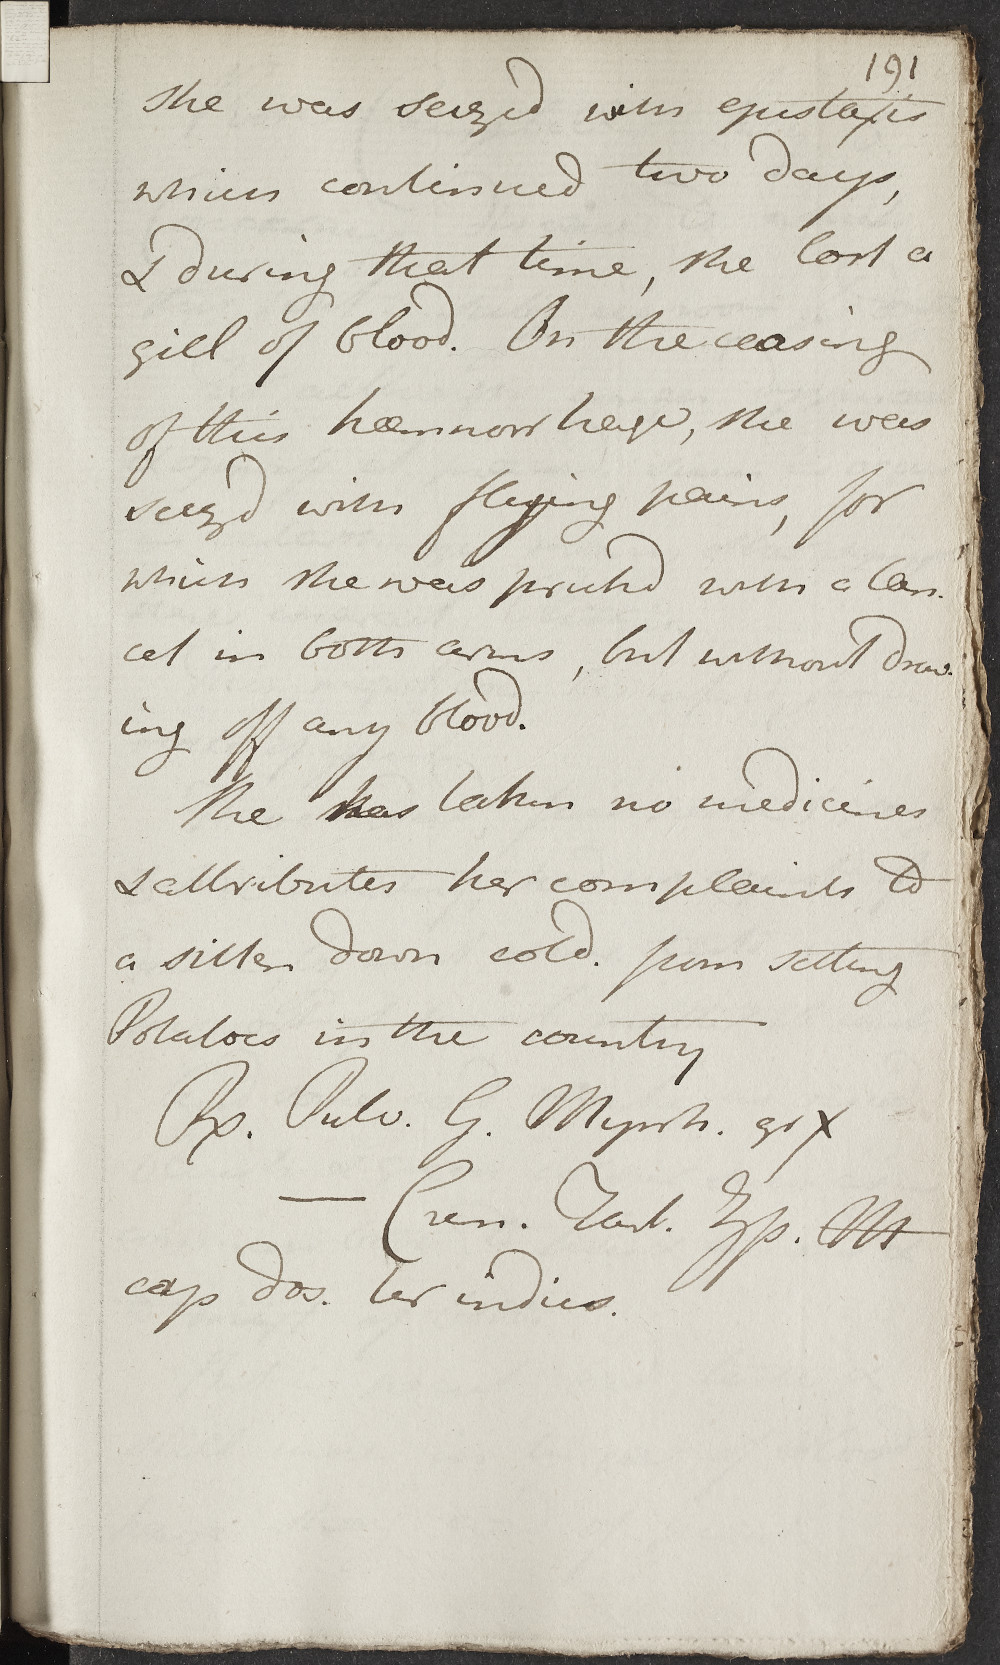 191
she was seized with epistaxis
which continued two days,
& during that time, she lost a
gill of blood. On the ceasing
of this hæmorrhage, she was
seiz'd with flying pains, for
which she was prick'd with a lan-
cet in both arms, but without draw-
ing off any blood.
She has taken no medicines
& attributes her complaints to
a sitten down cold. from setting
Potatoes in the country
Rx. Pulv. G. Myrrh. gr x
— Crem. Tart. ʒp. M
cap dos. ter indies.